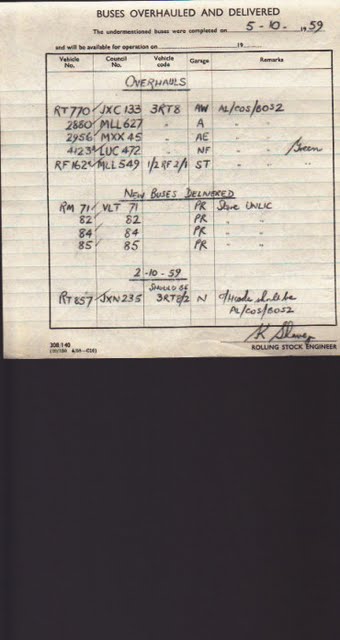 BUSES OVERHAULED AND DELIVERED
The undermentioned buses were completed on 5-10-1959
and will be available for operation on 19
Vehicle No. Council No. Vehicle code Garage Remarks
OVERHAULS
RT 770 JXC 133 3RT8 AW AL/COS/BOS2
2880 MLL 627 " A " "
2956 MXX 45 " AE " "
4123 LUC 472 " NF " " Green
RF 162 MLL 549 1/2RF2/1 ST " "
NEW BUSES DELIVERED
RM 71 VLT 71 PR Store UNLIC
82 82 PR " "
84 84 PR " "
85 85 PR " "
2-10-59
SHOULD BE
RT 857 JXN 235 3RT8/2 N
AL/COS/BOS2
308/140
ROLLING STOCK ENGINEER